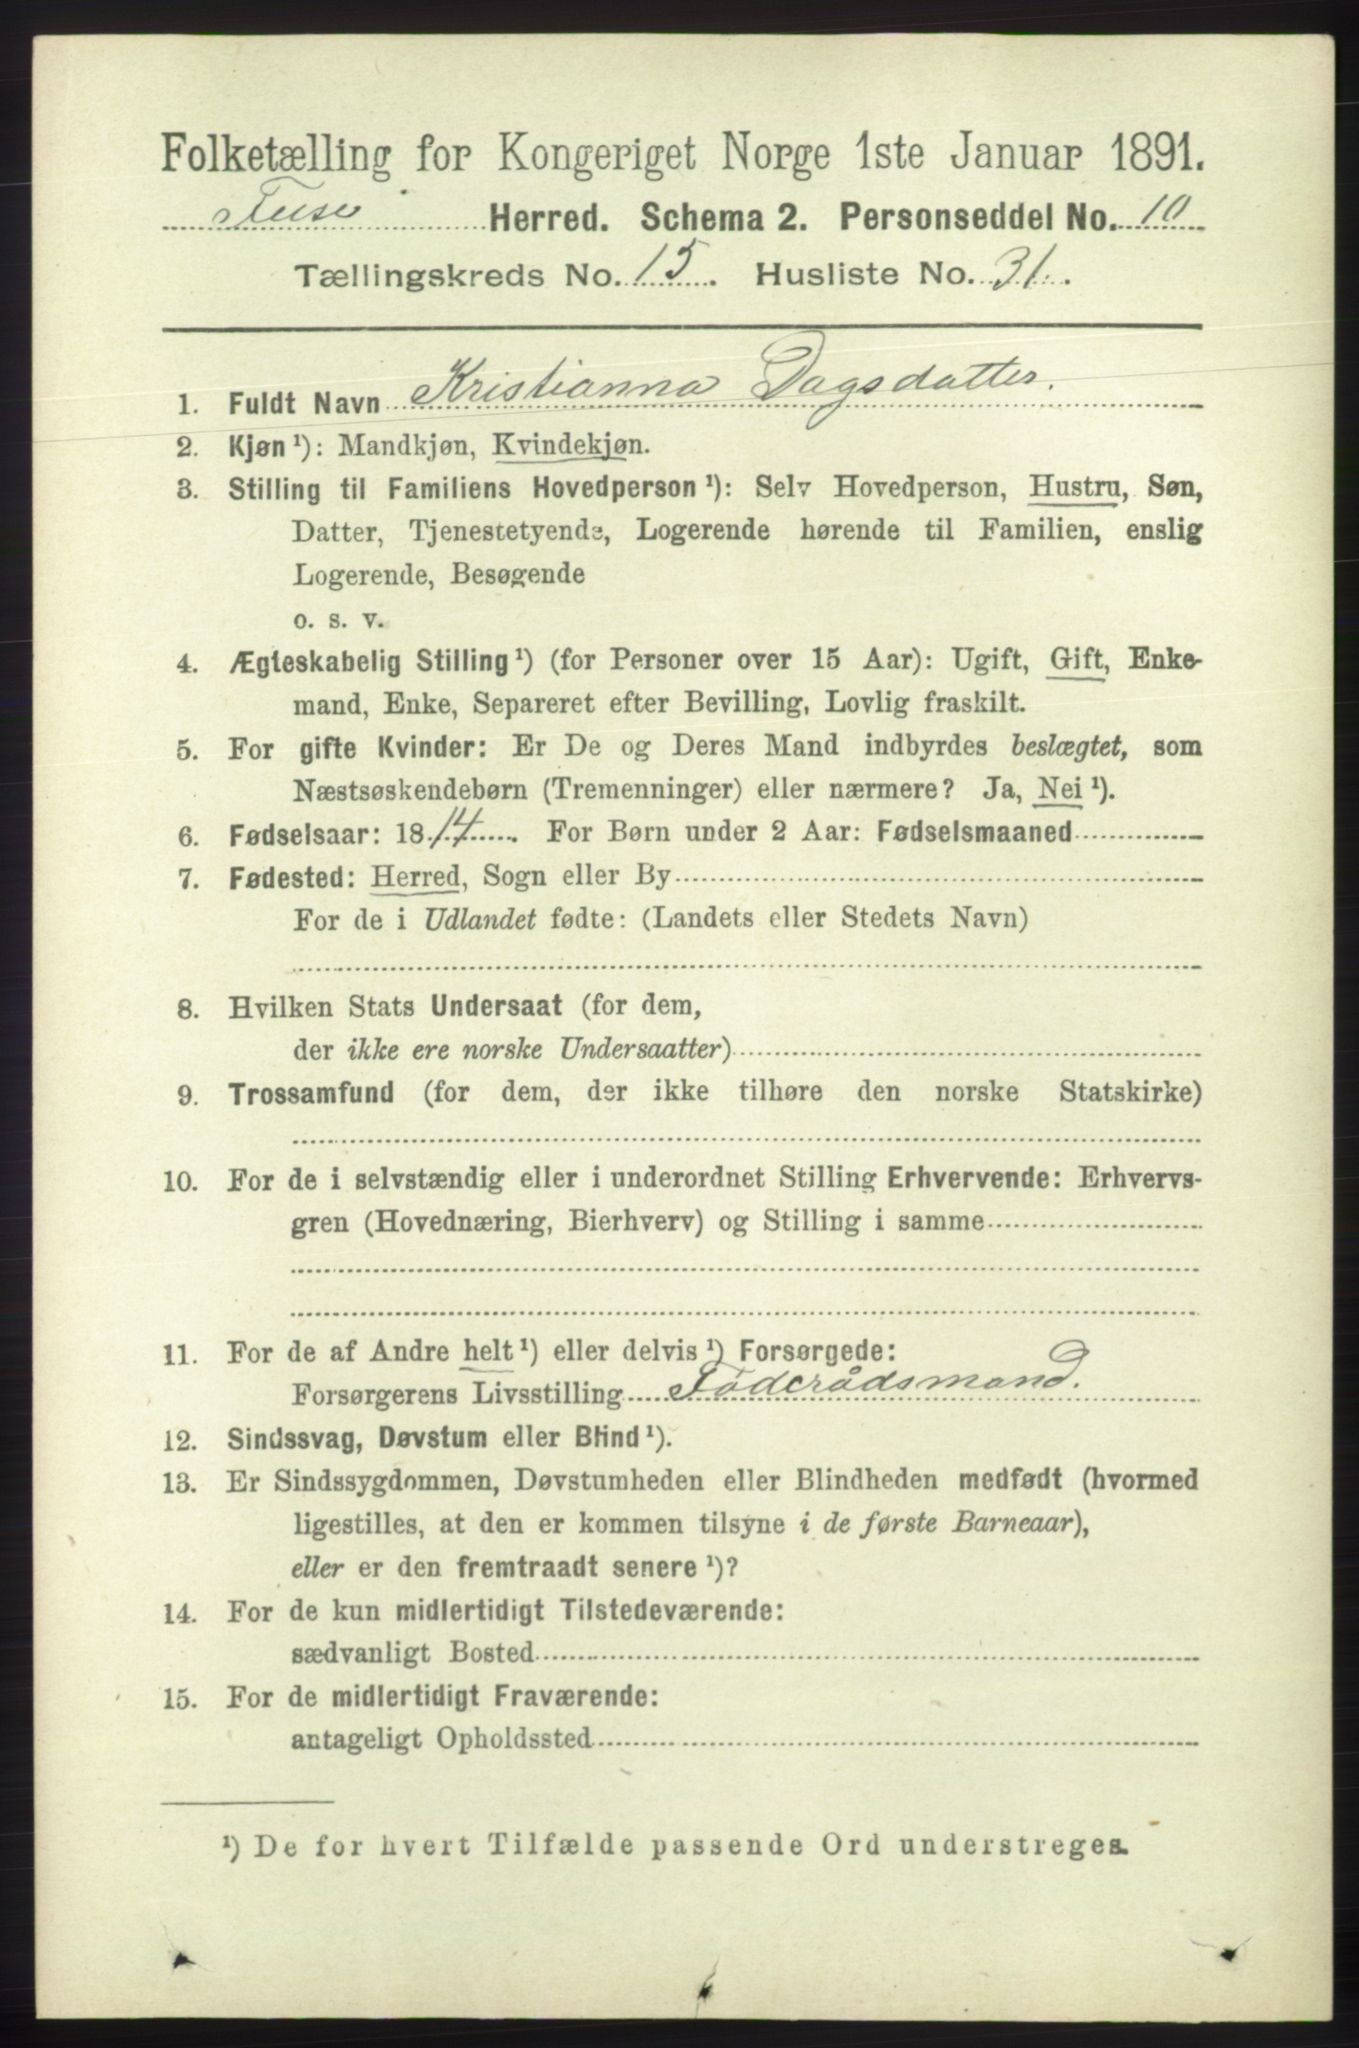 Folketælling for Kongeriget Norge 1ste Januar 1891.
Fuse Herred. Schema 2. Personseddel No. 10
Tællingskreds No. 15. Husliste No. 31.
1. Fuldt Navn Kristianna Dagsdatter.
2. Kjøn ¹): Mandkjøn, Kvindekjøn.
3. Stilling til Familiens Hovedperson ¹): Selv Hovedperson, Hustru, Søn,
Datter, Tjenestetyende, Logerende hørende til Familien, enslig
Logerende, Besøgende
o. s. v.
4. Ægteskabelig Stilling ¹) (for Personer over 15 Aar): Ugift, Gift, Enke-
mand, Enke, Separeret efter Bevilling, Lovlig fraskilt.
5. For gifte Kvinder: Er De og Deres Mand indbyrdes beslægtet, som
Næstsøskendebørn (Tremenninger) eller nærmere? Ja, Nei ¹).
6. Fødselsaar: 1814. For Børn under 2 Aar: Fødselsmaaned
7. Fødested: Herred, Sogn eller By
For de i Udlandet fødte: (Landets eller Stedets Navn)
8. Hvilken Stats Undersaat (for dem,
der ikke ere norske Undersaatter)
9. Trossamfund (for dem, der ikke tilhøre den norske Statskirke)
10. For de i selvstændig eller i underordnet Stilling Erhvervende: Erhvervs-
gren (Hovednæring, Bierhverv) og Stilling i samme
11. For de af Andre helt ¹) eller delvis ¹) Forsørgede:
Forsørgerens Livsstilling Föderådsmand.
12. Sindssvag, Døvstum eller Blind ¹).
13. Er Sindssygdommen, Døvstumheden eller Blindheden medfødt (hvormed
ligestilles, at den er kommen tilsyne i de første Barneaar),
eller er den fremtraadt senere ¹)?
14. For de kun midlertidigt Tilstedeværende:
sædvanligt Bosted
15. For de midlertidigt Fraværende:
antageligt Opholdssted
¹) De for hvert Tilfælde passende Ord understreges.